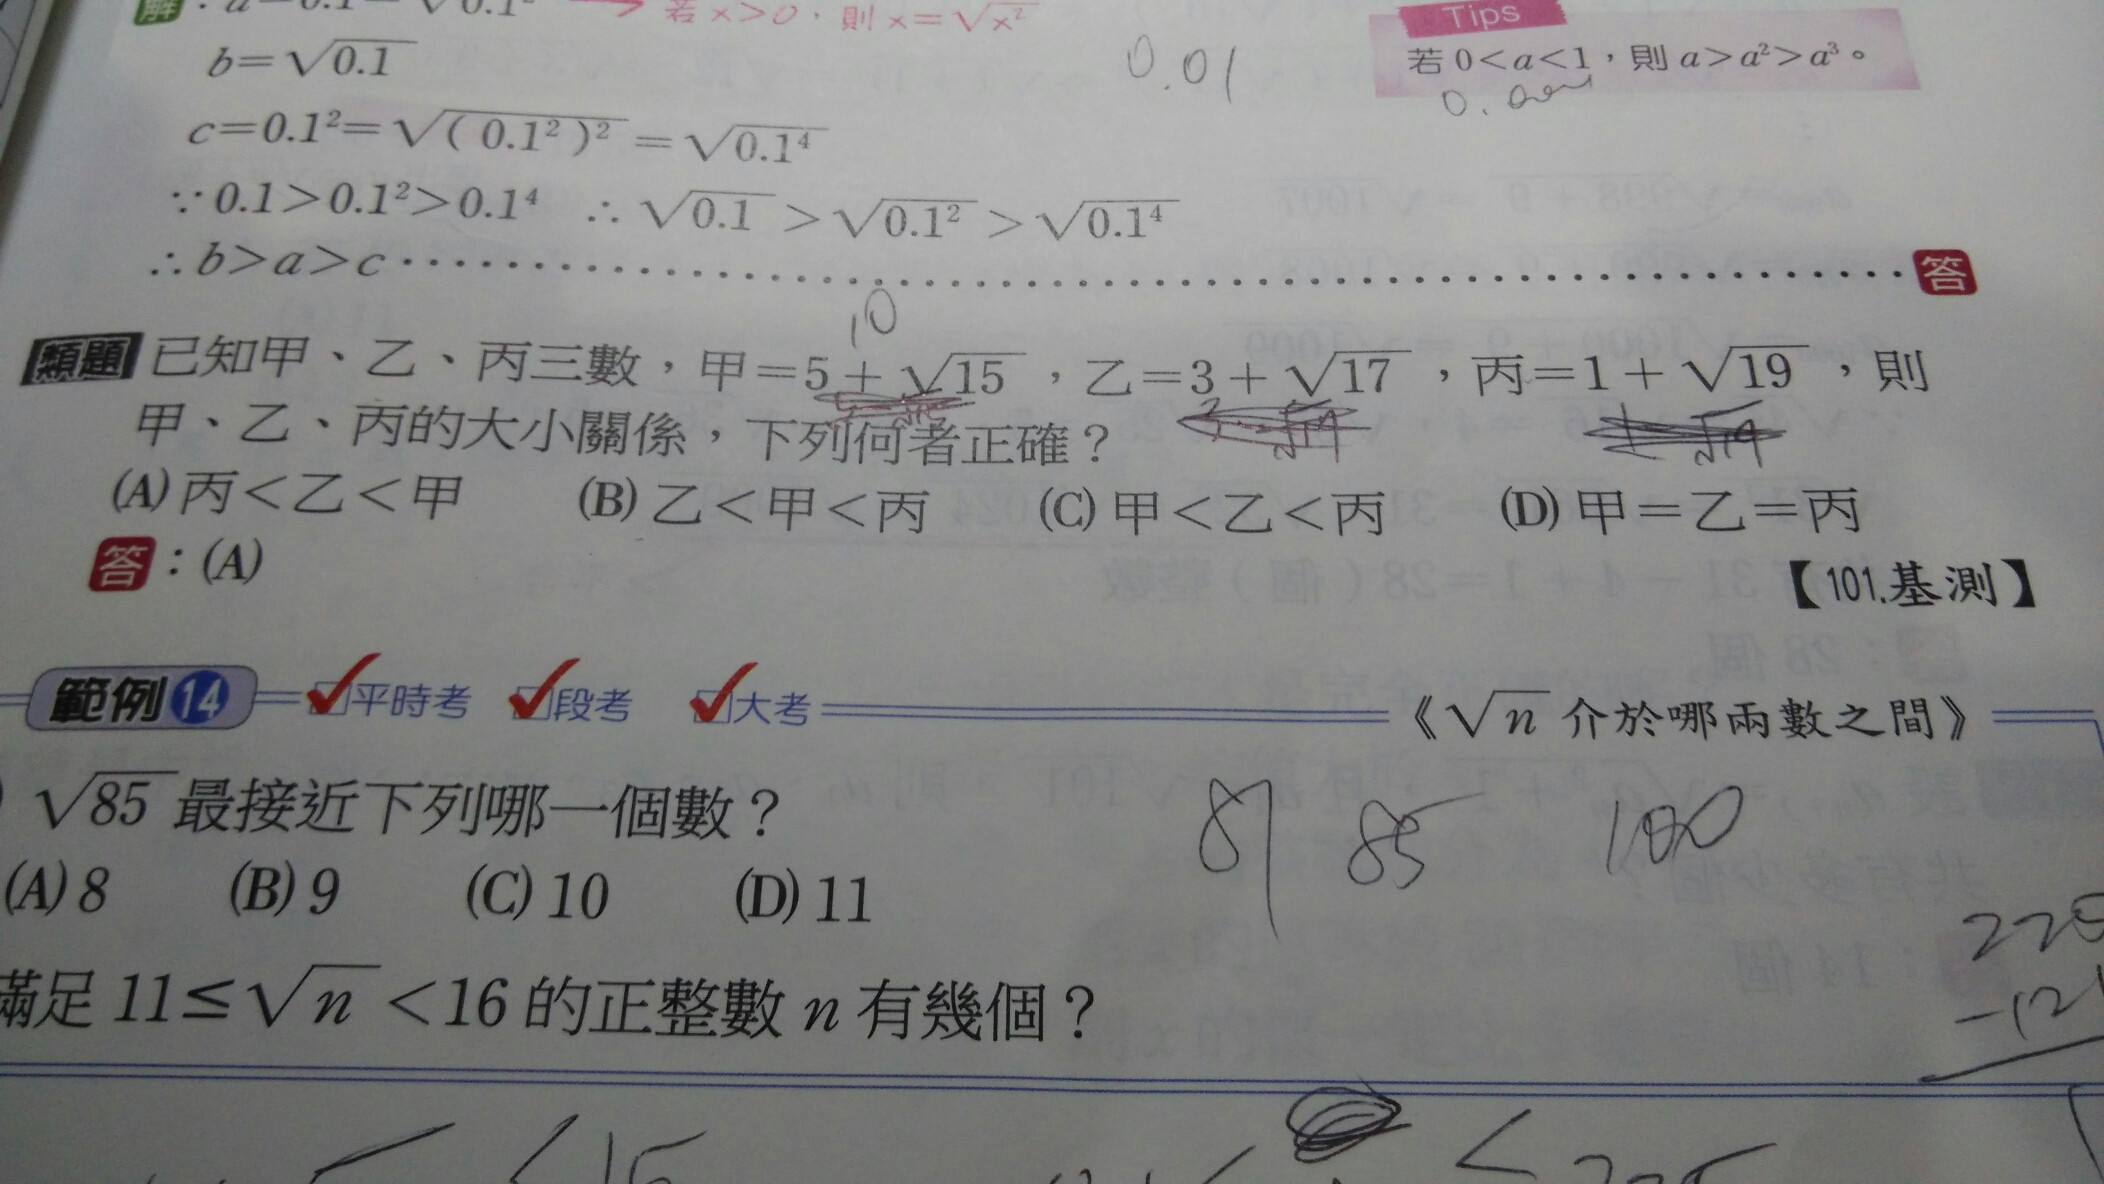 解：a=0.1=√0.1² → 若 x>0，則 x=√x²
Tips
b=√0.1
0.01
若 0<a<1，則 a>a²>a³。
c=0.1²=√(0.1²)²=√0.1⁴
∵0.1>0.1²>0.1⁴ ∴√0.1>√0.1²>√0.1⁴
∴b>a>c 答
10
類題 已知甲、乙、丙三數，甲=5+√15，乙=3+√17，丙=1+√19，則
甲、乙、丙的大小關係，下列何者正確？
(A) 丙<乙<甲 (B) 乙<甲<丙 (C) 甲<乙<丙 (D) 甲=乙=丙
答：(A)
【101.基測】
範例14 平時考 段考 大考 《√n 介於哪兩數之間》
√85 最接近下列哪一個數？
81 85 100
(A) 8 (B) 9 (C) 10 (D) 11
滿足 11≤√n<16 的正整數 n 有幾個？
-121